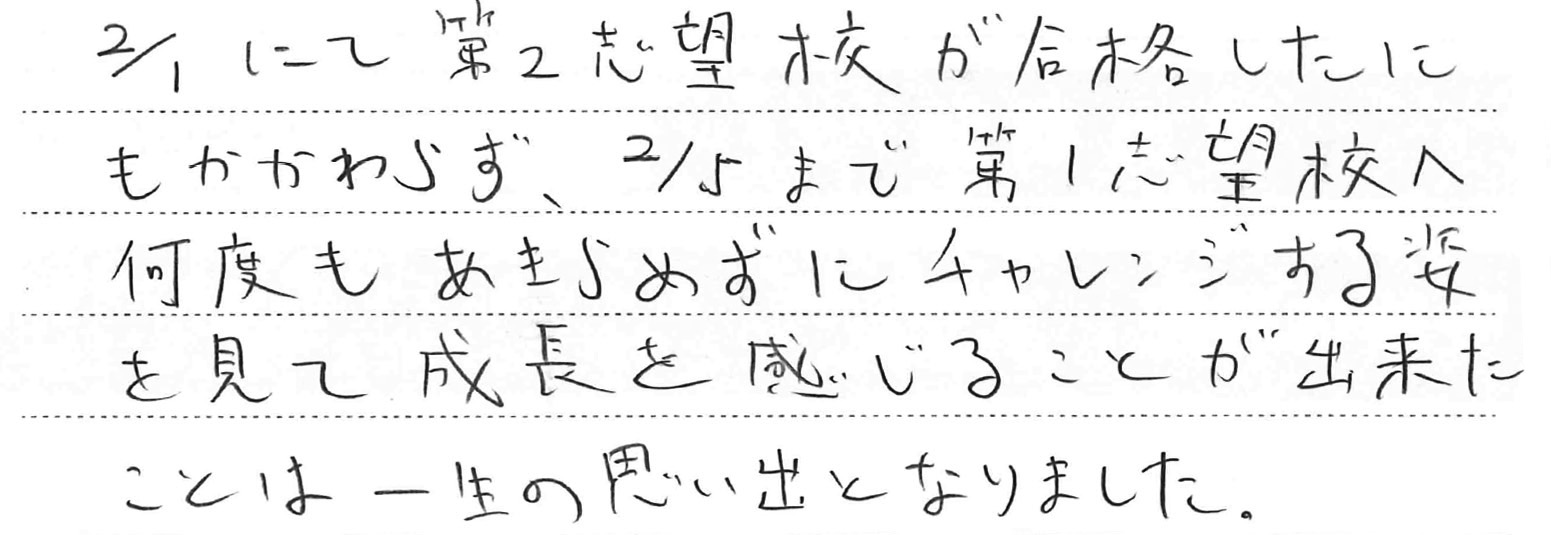 2/1 にて 第2志望校が合格したに
もかかわらず、2/5まで第1志望校へ
何度もあきらめずにチャレンジする姿
を見て成長を感じることが出来た
ことは一生の思い出となりました。